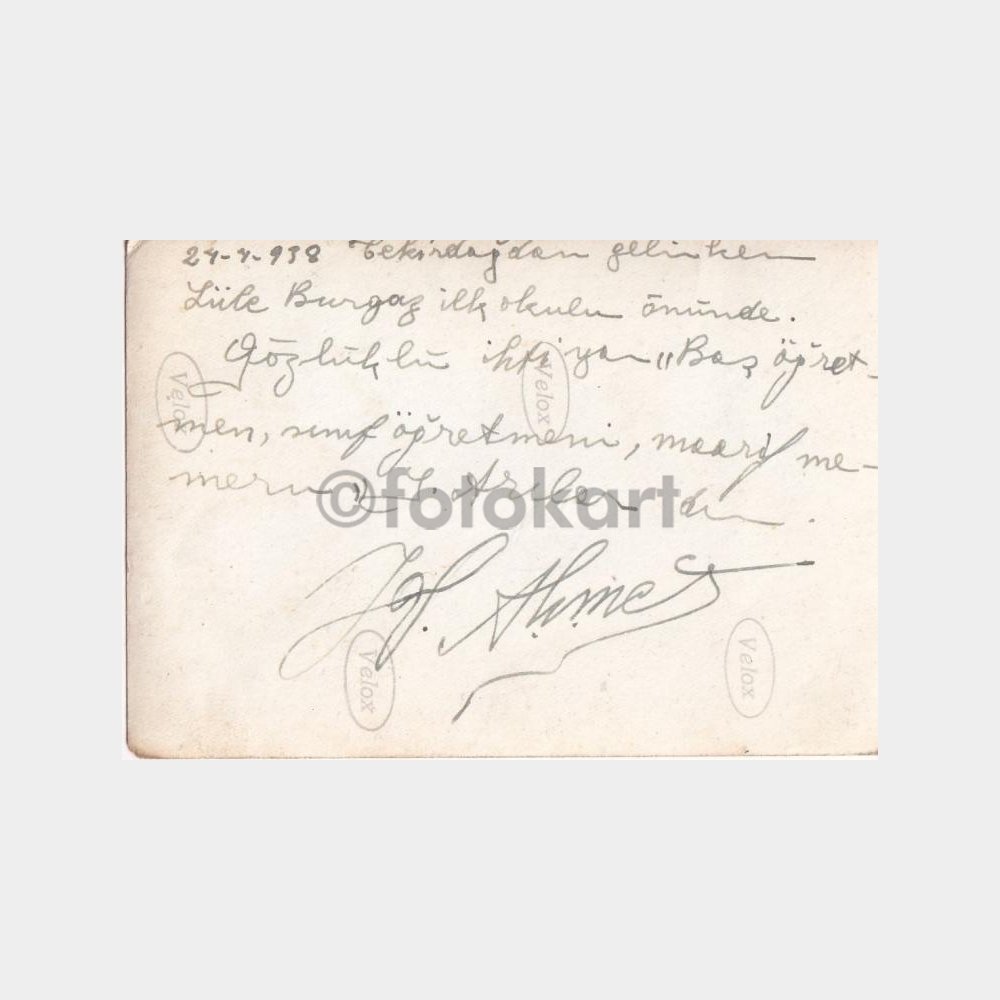 24-4-938 Tekirdağdan gelirken
Lüle Burgaz ilk okulu önünde.
Gözlüklü ihtiyar „Baş öğret-
men, sınıf öğretmeni, maarif me-
meru"
Ahmet
©fotokart
Velox
Velox
Velox
Velox